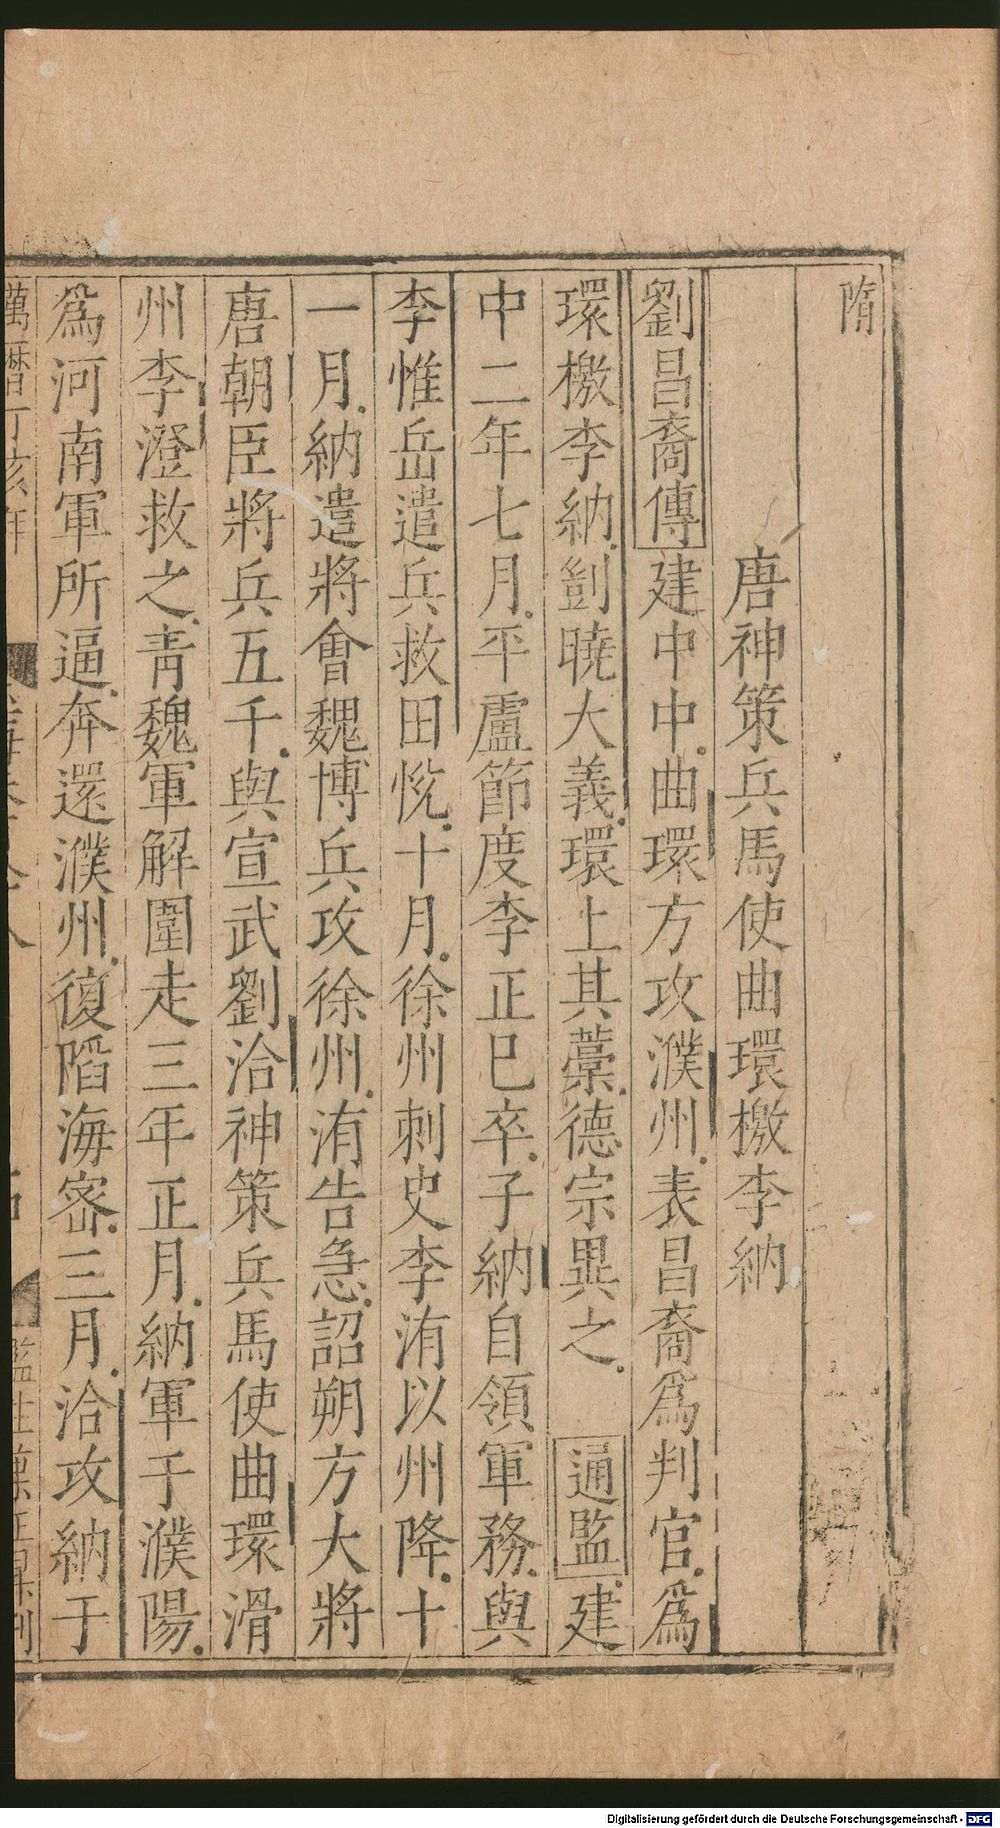 隋
唐神策兵馬使曲環檄李納
劉昌裔傳建中中曲環方攻濮州表昌裔爲判官爲
環檄李納剴曉大義環上其藁德宗異之 通監建
中二年七月平盧節度李正巳卒子納自領軍務與
李惟岳遣兵救田悅十月徐州刺史李洧以州降十
一月納遣將會魏博兵攻徐州洧告急詔朔方大將
唐朝臣將兵五千與宣武劉洽神策兵馬使曲環滑
州李澄救之靑魏軍解圍走三年正月納軍于濮陽
爲河南軍所逼奔還濮州復陷海密三月洽攻納于
萬曆丁亥年
Digitalisierung gefördert durch die Deutsche Forschungsgemeinschaft - DFG